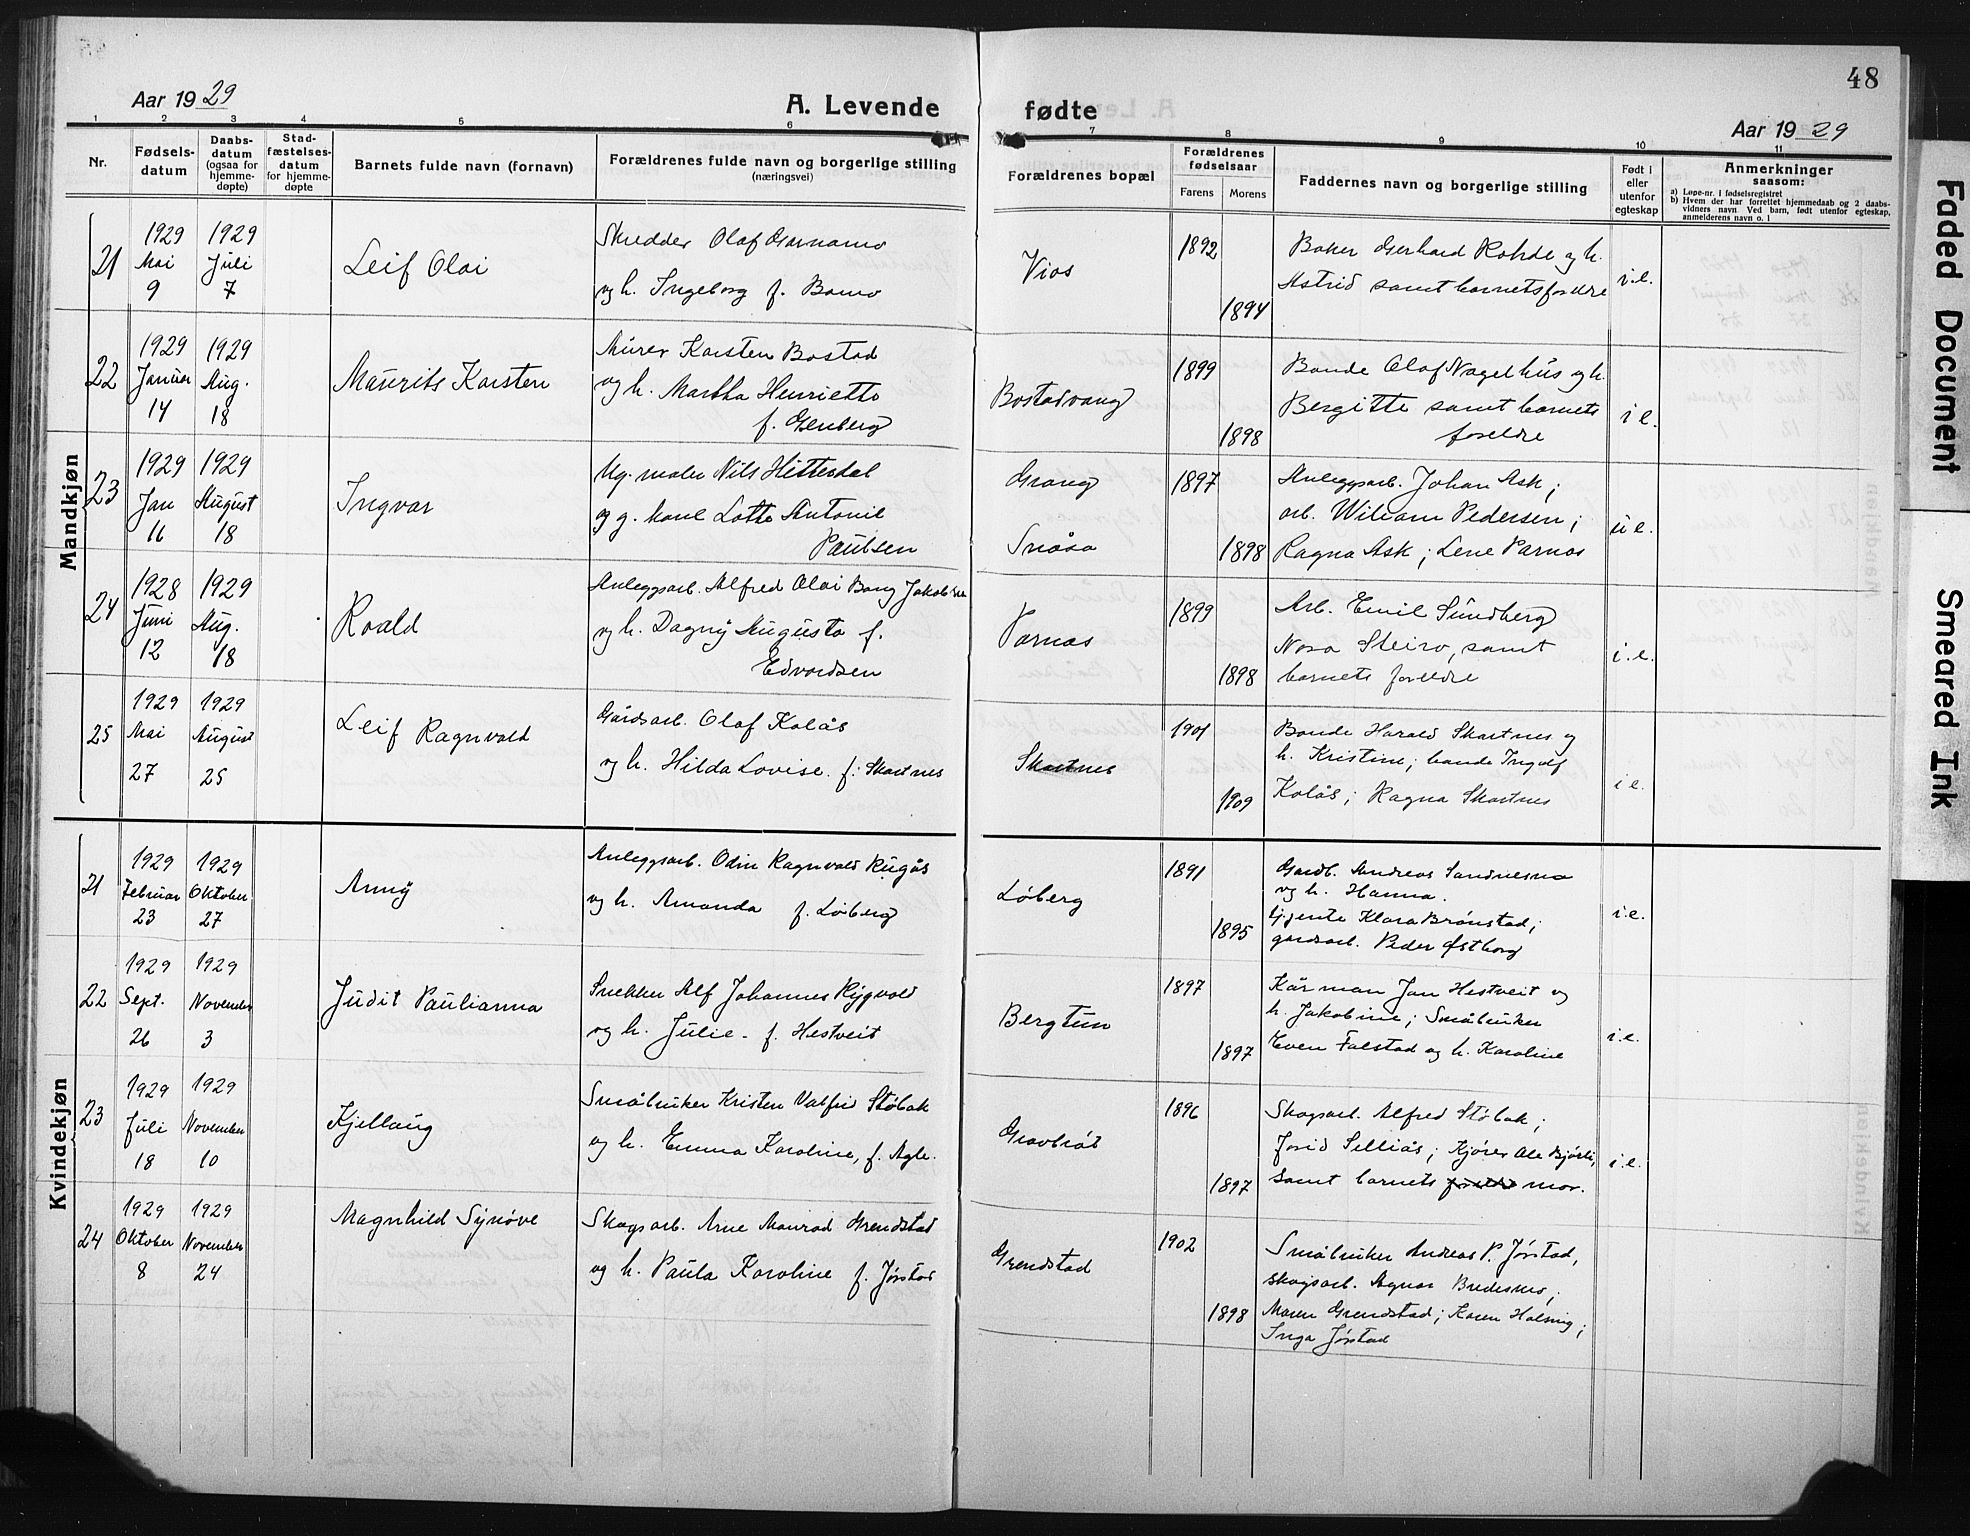 48
Aar 1929
A. Levende fødte
Aar 1929
1 2 3 4 5 6 7 8 9 10 11
Nr.
Fødsels-
datum
Daabs-
datum
(ogsaa for
hjemme-
døpte)
Stad-
fæstelses-
datum
for hjemme-
døpte
Barnets fulde navn (fornavn)
Forældrenes fulde navn og borgerlige stilling
(næringsvei)
Forældrenes bopæl
Forældrenes
fødselsaar
Farens
Morens
Faddernes navn og borgerlige stilling
Født i
eller
utenfor
egteskap
Anmerkninger
saasom:
a) Løpe-nr. i fødselsregistret
b) Hvem der har forrettet hjemmedaab og 2 daabs-
vidners navn Ved barn, født utenfor egteskap,
anmelderens navn o. l
Mandkjøn
21
1929
Mai
9
1929
Juli
7
Leif Olai
Skredder Olaf
og h. Ingeborg f.
Vios
1892
1894
Baker Gerhard Rohde og h.
Astrid samt barnets foreldre
i.e.
22
1929
Januar
14
1929
Aug.
18
Maurits Karsten
Murer Karsten Bostad
og h. Martha Henriette
f. Genberg
Bostadvang
1899
1898
Bonde Olaf Nagelhus og h.
Bergitte samt barnets
foreldre
i e.
23
1929
Jan
16
1929
August
18
Ingvar
Ug. maler Nils Hitterdal
og g. kone Lotte Antonie
Paulsen
Grong
Snåsa
1897
1898
Anleggsarb. Johan Ask;
arb. Wiliam Pedersen;
Ragna Ask; Lene Parnas
u e.
24
1928
Juni
12
1929
Aug.
18
Roald
Anleggsarb. Alfred Olai Bang Jakobsen
og h. Dagny Augusta f.
Edvardsen
Parnas
1899
1898
Arb. Emil Sundberg
Nora Steiro, samt
barnets foreldre
i.e.
25
1929
Mai
27
1929
August
25
Leif Ragnvald
Gårdsarb. Olaf Kolås
og h. Hilda Lovise f. Skartnes
Skartnes
1901
1909
Bonde Harald Skartnes og
h. Kristine; bonde Ingolf
Kolås; Ragna Skartnes
i e.
Kvindekjøn
21
1929
Februar
23
1929
Oktober
27
Anny
Anleggsarb. Odin Ragnvald Rugås
og h. Amanda f. Løberg
Løberg
1891
1895
Gardb. Andreas Sandnesmo
og h. Hanna.
Gjente Klara Brønstad;
gardsarb. Peder Østborg
i.e.
22
1929
Sept.
26
1929
November
3
Judit Paulianna
Snekker Alf Johannes Rygvold
og h. Julie. f. Hestveit
Bergtun
1897
1897
Kårman Jan Hestveit og
h. Jakobine; Småbruker
Even Falstad og h. Karoline
i.e.
23
1929
Juli
18
1929
November
10
Kjellaug
Småbruker Kristen Valfrid Støbak
og h. Emma Karoline, f. Agle.
Gravbråt
1896
1897
Skogsarb. Alfred Støbak;
Jorid Selliås; Kjører Ole Bjørli,
samt barnets foreldre mor.
i.e.
24
1929
Oktober
8
1929
November
24
Magnhild Synøve
Skogsarb. Arne Monrad Grendstad
og h. Paula Karoline f. Jørstad
Grendstad
1902
1898
Småbruker Andreas P. Jørstad,
skogsarb. Agnar Bredesmo;
Maren Grendstad; Karen Holsing;
Inga Jørstad
Faded Document
Smeared Ink